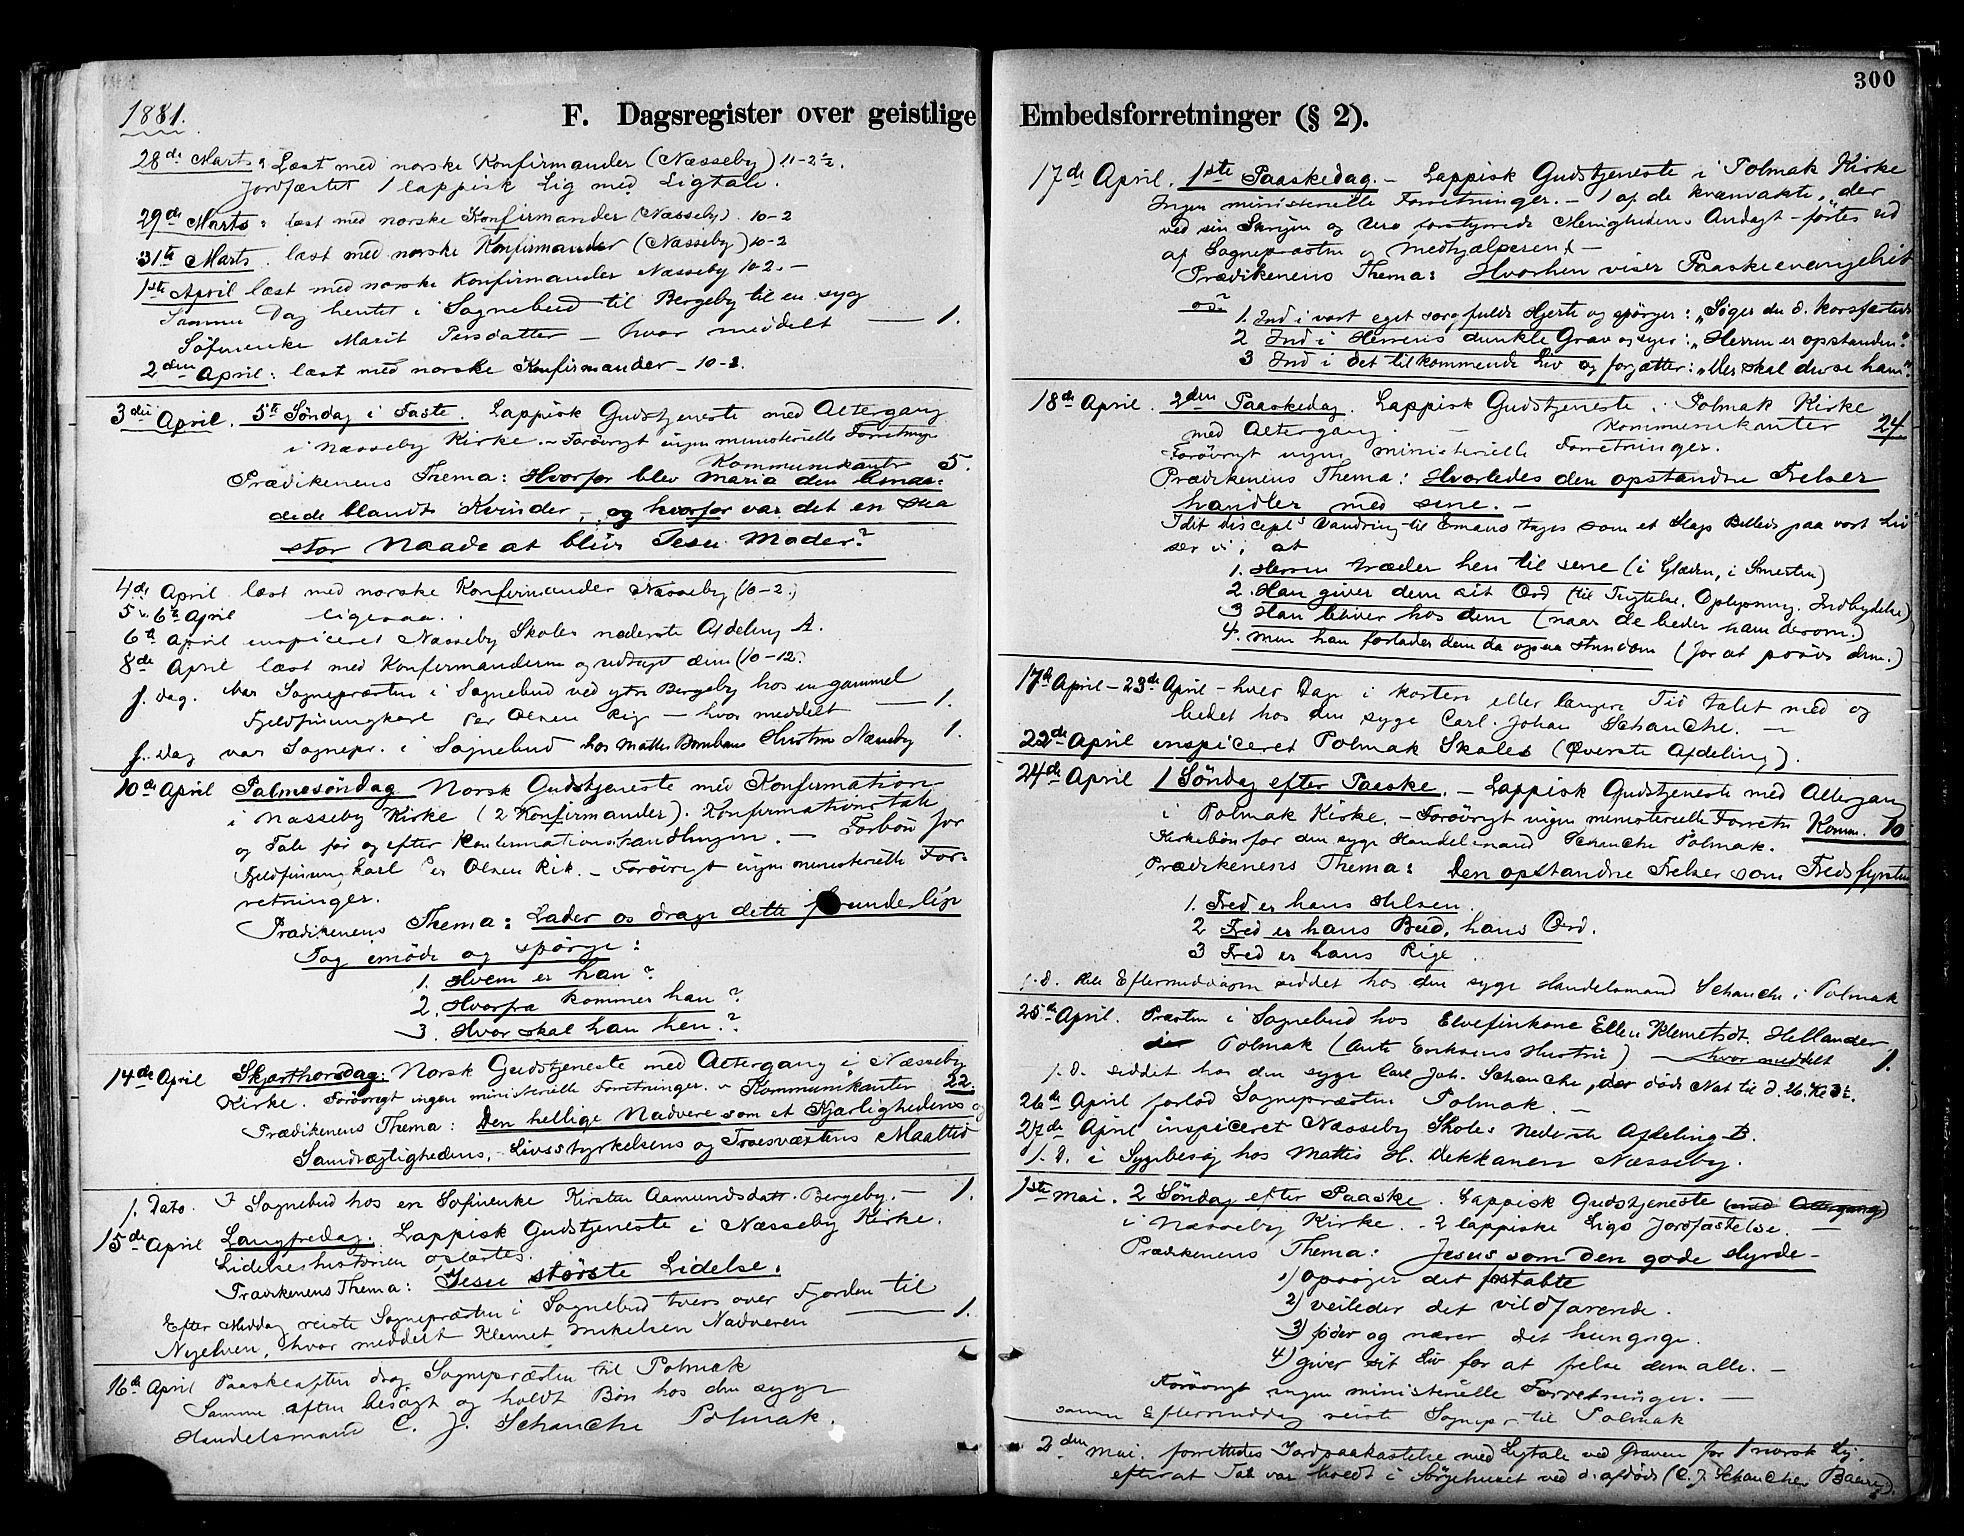 1881.
F. Dagsregister over geistlige
28de Marts: Læst med norske Konfirmander (Næsseby) 11-2½.
Jordfæstet 1 lappisk Lig med Ligtale.
29de Marts: læst med norske Konfirmander (Næsseby). 10-2
31te Marts. læst med norske Konfirmander (Næsseby) 10-2
1ste April læst med norske Konfirmander Næsseby 10-2. -
Samme Dag hentet i Sognebud til Bergeby til en syg
Søfinenke Marit Persdatter - hvor meddelt — 1.
2den April: læst med norske Konfirmander - 10-2.
3die April. 5te Søndag i Faste. Lappisk Gudstjeneste med Altergang
i Næsseby Kirke. - Forøvrigt ingen ministerielle Forretninger
Kommunikanter 5.
Prædikenens Thema: Hvorfor blev Maria den benaa-
dede blandt Kvinder, - og hvorfor var det en saa
stor Naade at blive Jesu Moder?
4de April læst med norske Konfirmander Næsseby (10-2.)
5 & 6te April ligesaa.
6te April inspiceret Næsseby Skoles nederste Afdeling A.
8de April læst med Konfirmanderne og udtaget dem (10-12.
s. dag. var Sognepræsten i Sognebud ved ytre Bergeby hos en gammel
Fjeldfinungkarl Per Olsen Rig - hvor meddelt — 1.
s. Dag var Sognepr. i Sognebud hos Mattis Hustru Næsseby 1.
10de April Palmesøndag Norsk Gudstjeneste med Konfirmation
i Næsseby Kirke (2 Konfirmander). Konfirmationstale
og Tale før og efter Konfirmationshandlingen. - Forbøn for
Fjeldfinungkarl Per Olsen Rik. - Forøvrigt ingen ministerielle For-
retninger.
Prædikenens Thema: Lader os drage dette forunderlige
Tog imøde og spørge:
1. Hvem er han?
2. Hvorfra kommer han?
3. Hvor skal han hen?
14de April Skjærthorsdag: Norsk Gudstjeneste med Altergang i Næsseby
Kirke. Forøvrigt ingen ministerielle Forretninger. - Kommunikanter 22.
Prædikenens Thema: Den hellige Nadvere som et Kjærlighedens og
Samdrægtighedens, - Livsstyrkelsens og Troesvæxtens Maaltid
s. Dato. I Sognebud hos en Søfinenke Kirsten Aamundsdatr. Bergeby. - 1.
15de April Langfredag. Lappisk Gudstjeneste i Næsseby Kirke.
Lidelseshistorien oplæstes.
Prædikenens Thema: Jesu største Lidelse.
Efter Middag reiste Sognepræsten i Sognebud tvers over Fjorden til
Nyelven, hvor meddelt Klemet Mikelsen Nadveren — 1.
16de April Paaskeaften drog Sognepræsten til Polmak
Samme aften besøgt og holdt Bøn hos den syge
Handelsmand C. J. Schanche Polmak.
300
Embedsforretninger (§ 2).
17de April. 1ste Paaskedag. - Lappisk Gudstjeneste i Polmak Kirke
Ingen ministerielle Forretninger. - 1 af de kvænvakte, der
ved sin Skrigen og Uro forstyrrede Menighedens Andagt - førtes ud
af Sognepræsten og Medhjælperen. -
Prædikenens Thema: Hvorhen viser Paaskeevangeliet
os?
1. Ind i vort eget sorgfulde Hjerte og spørger: „Søger du d. korsfæstede
2 Ind i Herrens dunkle Grav og siger: „Herren er opstanden".
3 Ind i det tilkommende Liv og forjætter: „Der skal du se ham".
18de April. 2den Paaskedag. Lappisk Gudstjeneste i Polmak Kirke
med Altergang. - Kommunikanter 24
Forøvrigt ingen ministerielle Forretninger.
Prædikenens Thema: Hvorledes den opstandne Frelser
handler med sine. -
I det discipl's Vandring til Emaus tages som et Slags Billede paa vort Liv
ser vi; at
1. Herren træder hen til sine (i Glæden, i Smerten)
2. Han giver dem sit Ord (til Tugtelse, Oplysning, Indbydelse)
3 Han bliver hos dem (naar de beder ham derom.)
4. men han forlader dem da ogsaa stundom (for at prøve dem.)
17de April - 23de April - hver Dag i kortere eller længere Tid talet med og
bedet hos den syge Carl Johan Schanche. -
22de April inspiceret Polmak Skoles (Øverste Afdeling).
24de April 1 Søndag efter Paaske. - Lappisk Gudstjeneste med Altergang
i Polmak Kirke. - Forøvrigt ingen ministerielle Forretn. Komm. 10
Kirkebøn for den syge Handelsmand Schanche Polmak.
Prædikenens Thema: Den opstandne Frelser som Fredsfyrsten
1. Fred er hans Hilsen.
2 Fred er hans Bud, hans Ord.
3 Fred er hans Rige.
s. D. hele Eftermiddagen siddet hos den syge Handelsmand Schanche i Polmak
25de April. Præsten i Sognebud hos Elvefinkone Ellen Klemetsdt. Hellander
Polmak (Ante Eriksens Hustru) - hvor meddelt 1.
s. D. siddet hos den syge Carl Joh. Schanche, der døde Nat til d. 26. Kl 3½.
26de April forlod Sognepræsten Polmak. -
27de April inspiceret Næsseby Skoles Nederste Afdeling B.
s. D. i Sygebesøg hos Mattis H. Dekkanen Næsseby.
1ste Mai. 2 Søndag efter Paaske. Lappisk Gudstjeneste (med Altergang)
i Næsseby Kirke. - 2 lappiske Ligs Jordfæstelse. -
Prædikenens Thema: Jesus som den gode Hyrde -
1) opsøger det fortabte
2) veileder det vildfarende.
3) føder og nærer det hungrige.
4) giver sit Liv for at frelse dem alle. -
Forøvrigt ingen ministerielle Forretninger. -
samme Eftermiddag reiste Sognepr til Polmak
2den Mai. forrettedes Jordpaakastelse med Ligtale ved Graven for 1 norsk Lig.
efterat Tale var holdt i Sørgehuset ved d. afdøde (C. J. Schanches Baare).